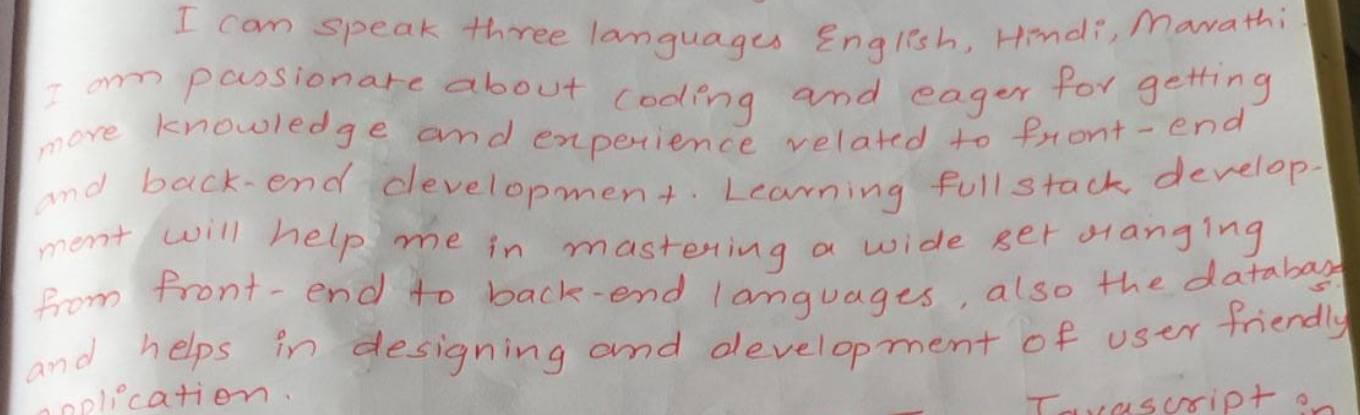 I can speak three languages English, Hindi, Marathi
I am passionate about coding and eager for getting
more knowledge and experience related to front-end
and back-end development. Learning full stack develop-
ment will help me in mastering a wide set ranging
from front-end to back-end languages, also the databas
and helps in designing and development of user friendly
application. Javascript in